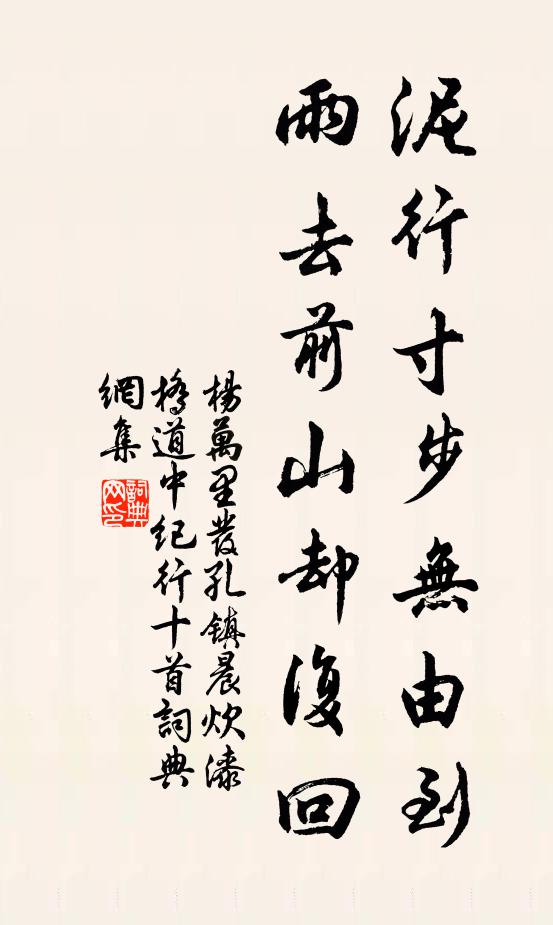 泥行寸步無由到
雨去前山却復回
楊萬里發孔鎮晨炊漆
橋道中紀行十首詞典
網集
詞典網印